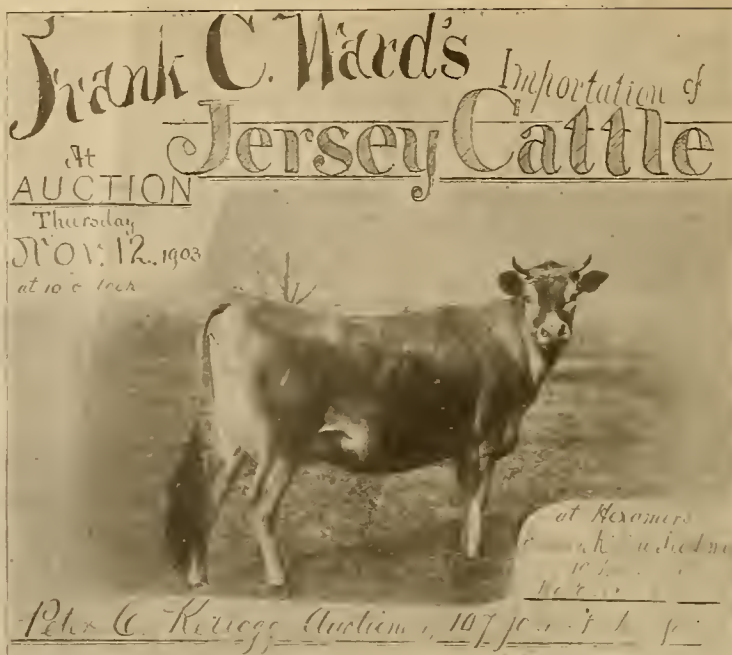 Frank C. Ward's
Importation of
Jersey Cattle
At
AUCTION
Thursday
Nov. 12, 1903
at 10 o'clock
at Hexamers
Peter C. Kellogg, 107 John St